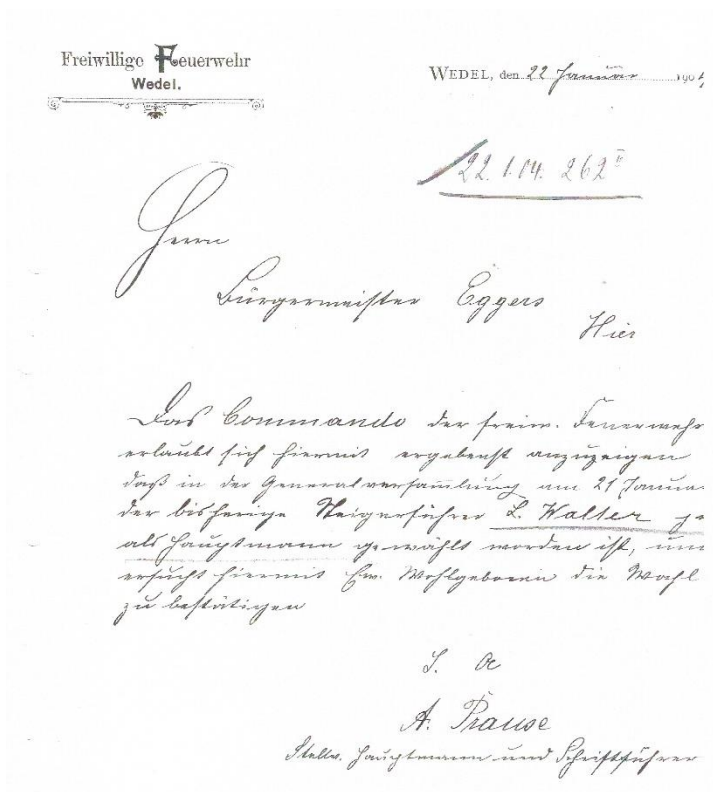 Freiwillige Feuerwehr
Wedel.
WEDEL, den 22 Januar 1904
22.1.04. 262 II
Herrn
Bürgermeister Eggers
Hier
Das Commando der freiw. Feuerwehr
erlaubt sich hiermit ergebenst anzuzeigen
daß in der Generalversammlung am 21 Janua
der bisherige Steigerführer L. Walter
als Hauptmann gewählt worden ist, und
ersucht hiermit Ew. Wohlgeboren die Wahl
zu bestätigen
A. Prause
Stellv. Hauptmann und Schriftführer